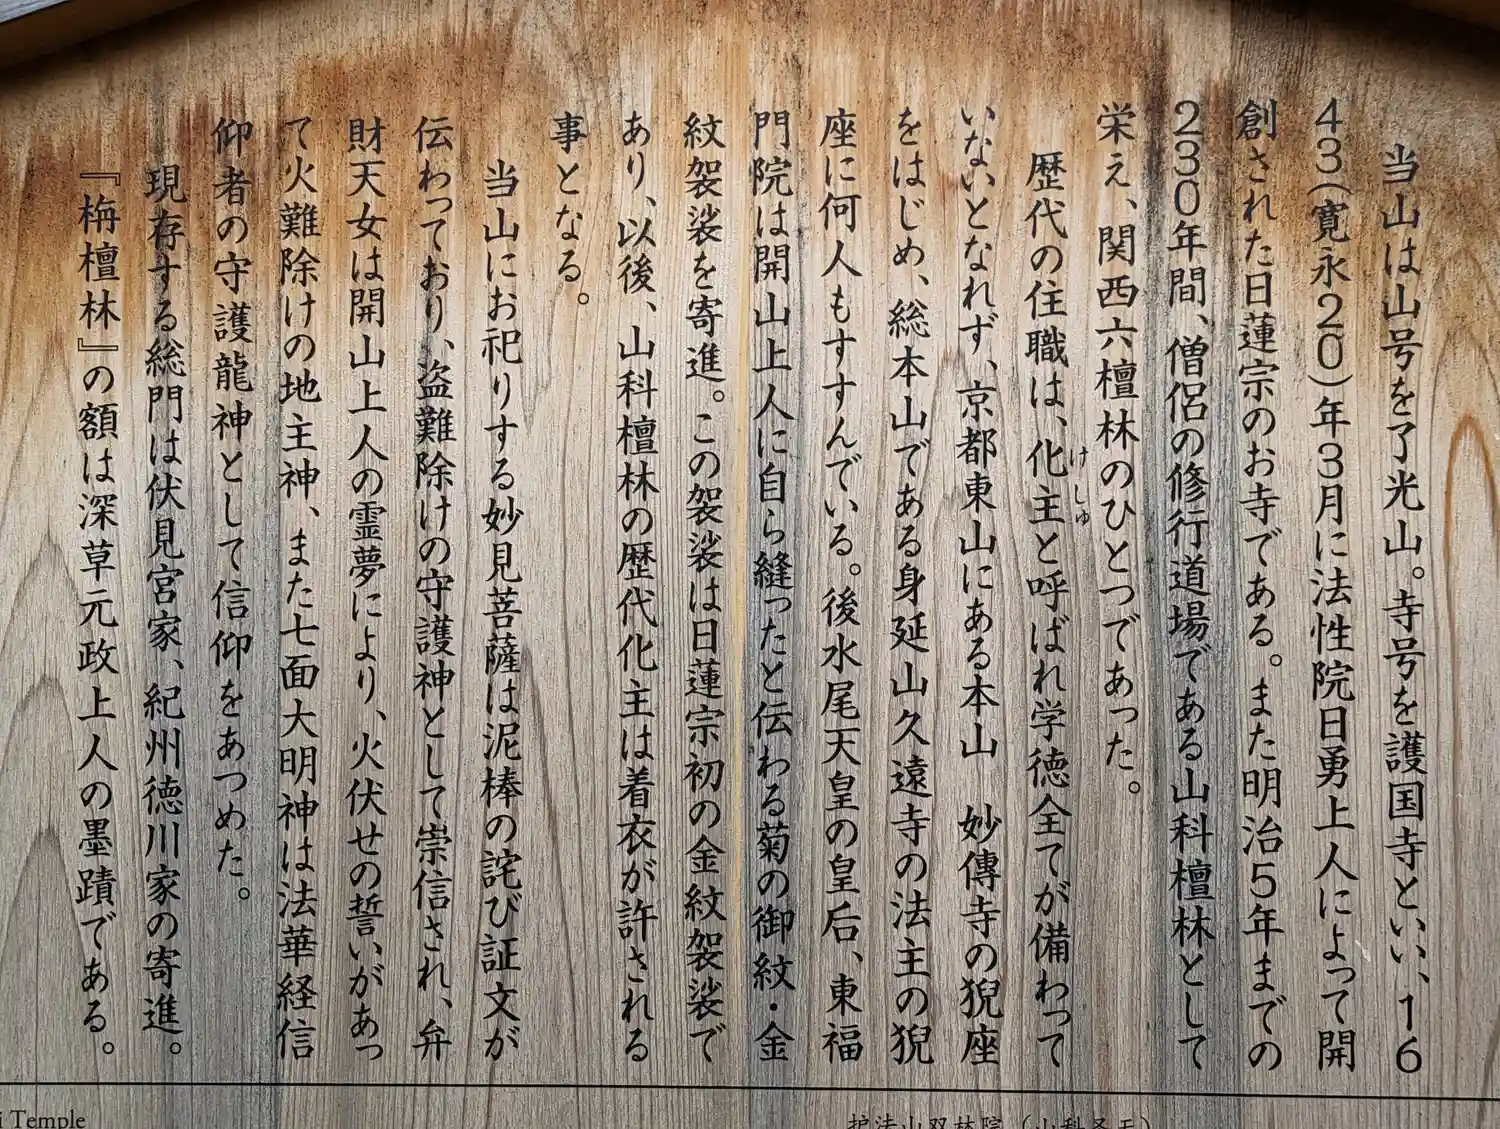 当山は山号を了光山。寺号を護国寺といい、16
43(寛永20)年3月に法性院日勇上人によって開
創された日蓮宗のお寺である。また明治5年までの
230年間、僧侶の修行道場である山科檀林として
栄え、関西六檀林のひとつであった。
歴代の住職は、化主と呼ばれ学徳全てが備わって
けしゅ
いないとなれず、京都東山にある本山 妙傳寺の猊座
をはじめ、総本山である身延山久遠寺の法主の猊
座に何人もすすんでいる。後水尾天皇の皇后、東福
門院は開山上人に自ら縫ったと伝わる菊の御紋・金
紋袈裟を寄進。この袈裟は日蓮宗初の金紋袈裟で
あり、以後、山科檀林の歴代化主は着衣が許される
事となる。
当山にお祀りする妙見菩薩は泥棒の詫び証文が
伝わっており、盗難除けの守護神として崇信され、弁
財天女は開山上人の霊夢により、火伏せの誓いがあっ
て火難除けの地主神、また七面大明神は法華経信
仰者の守護龍神として信仰をあつめた。
現存する総門は伏見宮家、紀州徳川家の寄進。
『栴檀林』の額は深草元政上人の墨蹟である。
i Temple
护法山双林院(山科圣天)